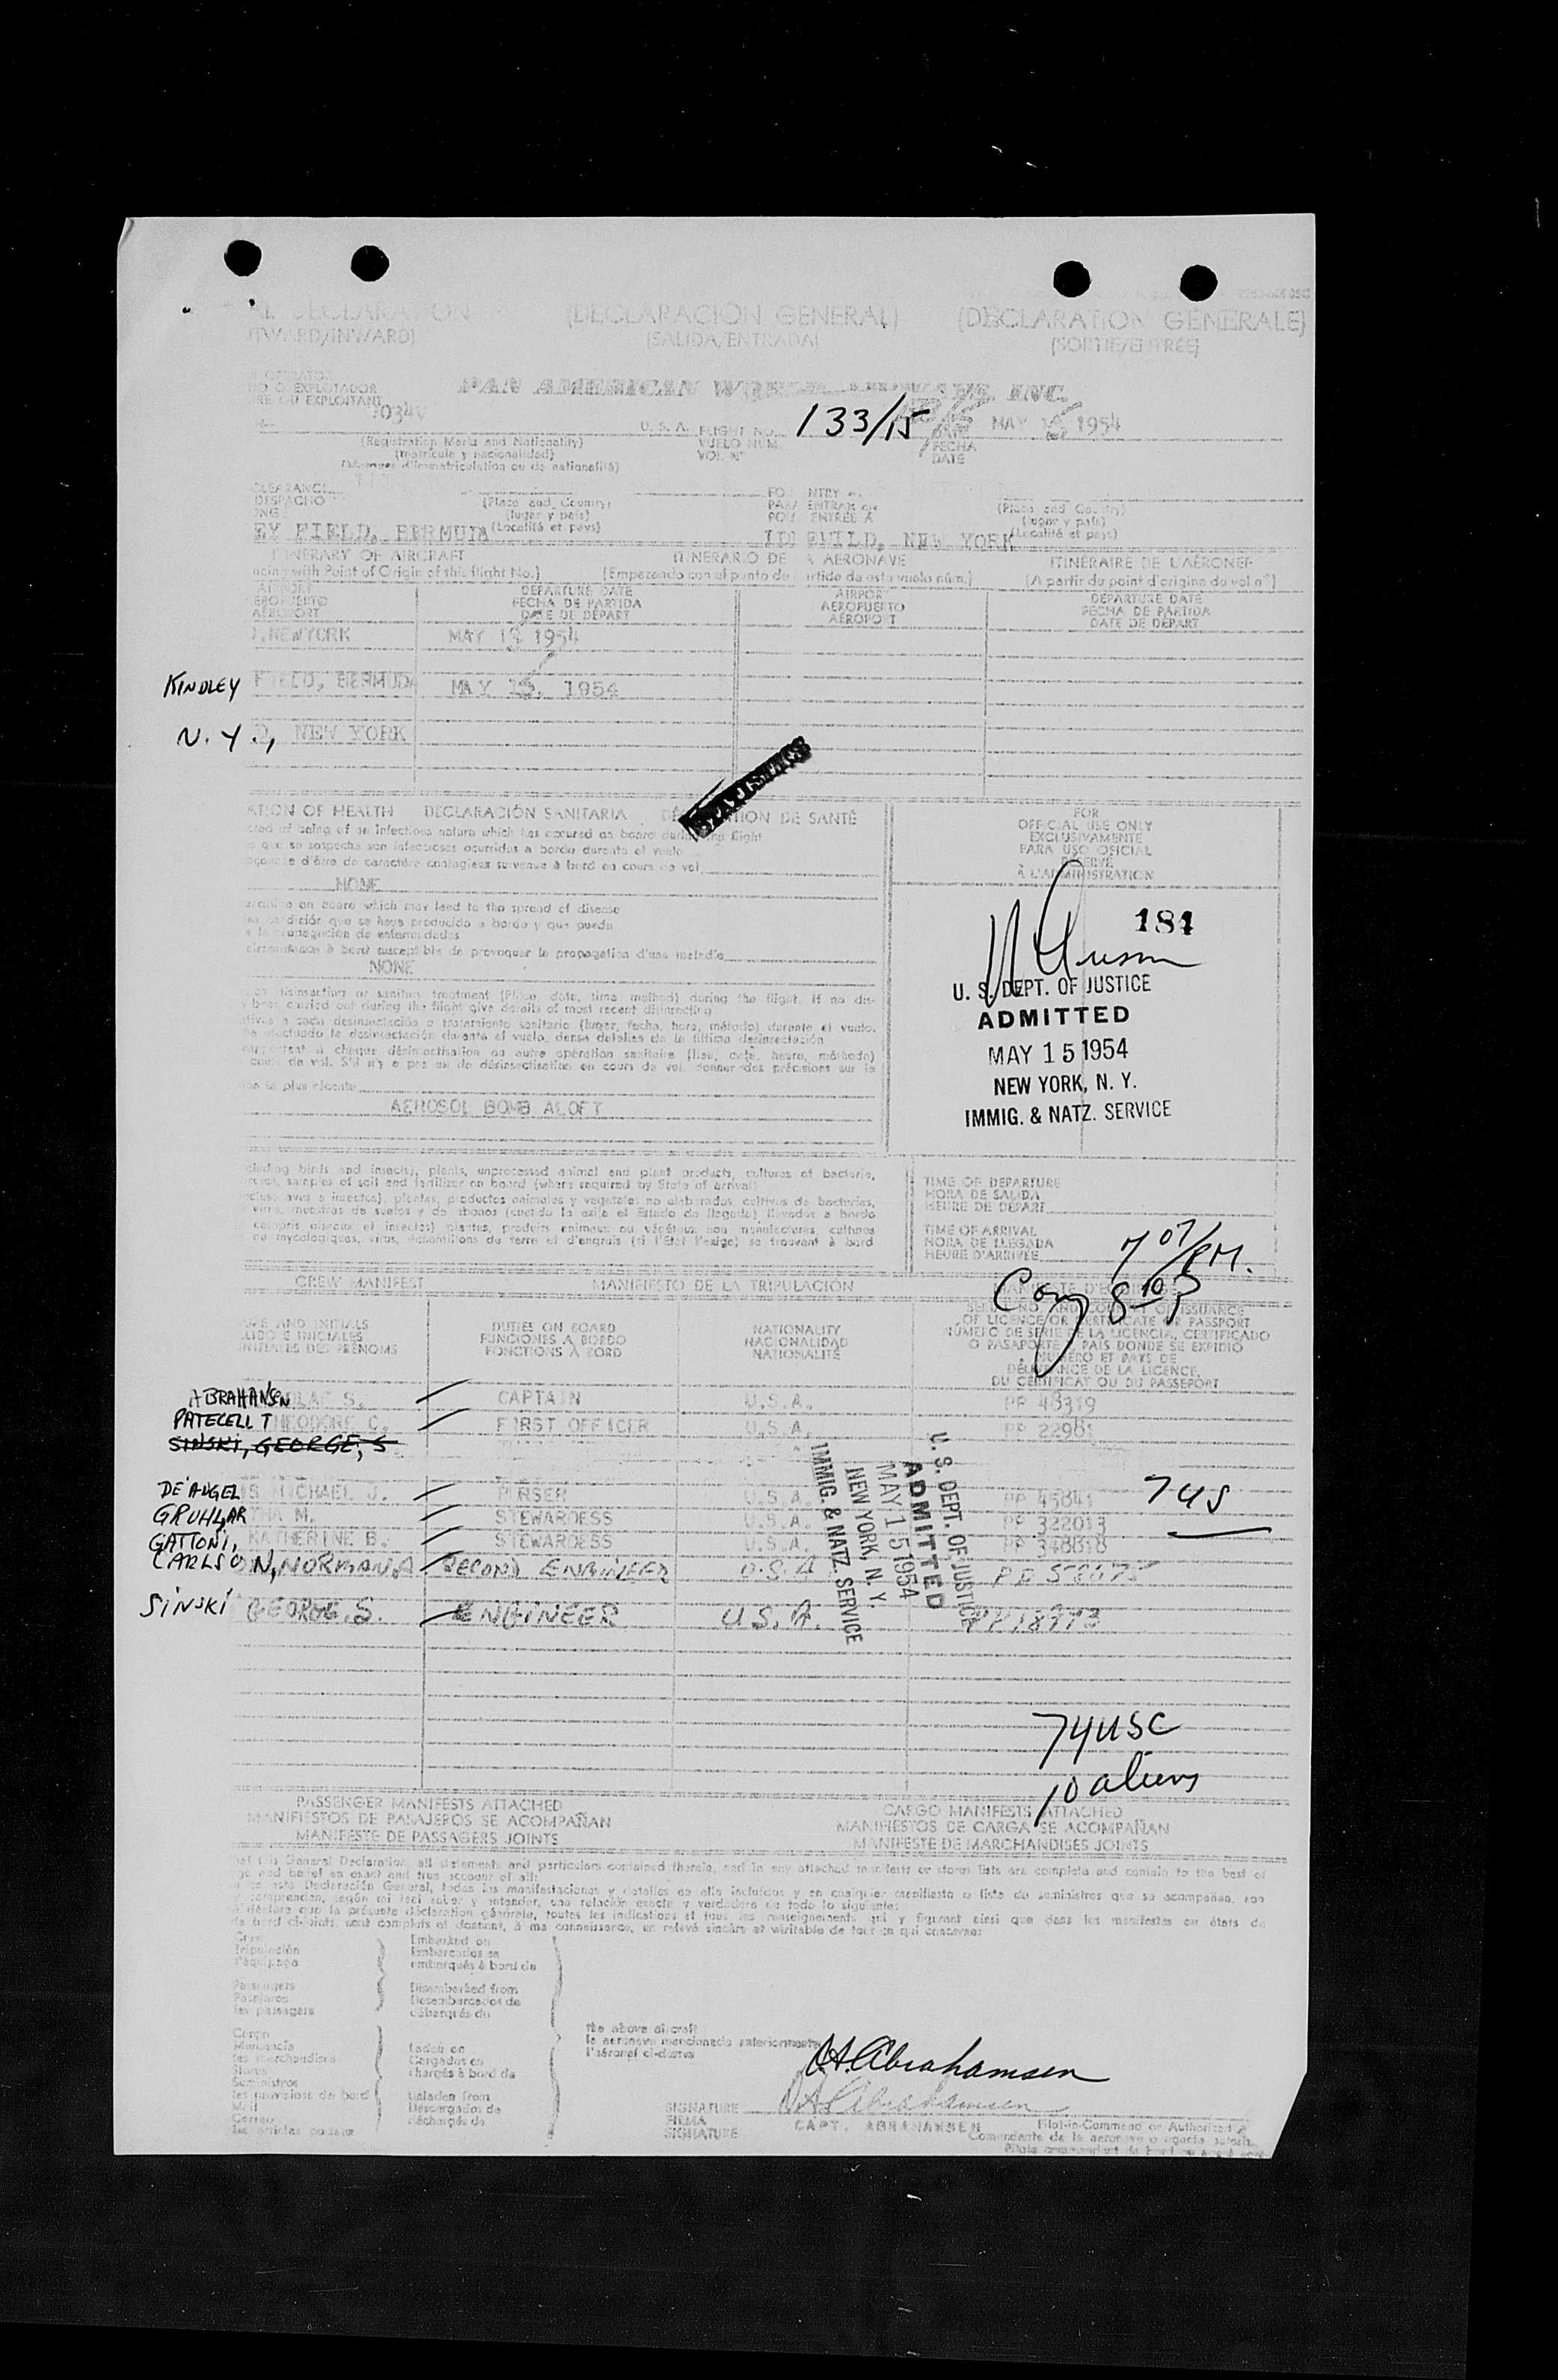 DECLARATION (DECLARACION GENERAL) (DECLARATION GENERALE)
(SALIDA/ENTRADA) (SORTIE/ENTREE)
PAN AMERICAN INC.
O EXPLOTADOR
OU EXPLOITANT
U. S. A. FLIGHT NO. 133/15 MAY 1954
VUELO NUM. FECHA
DATE
(Registration Marks and Nationality)
(matricula y nacionalidad)
(Marques d'immatriculation ou de nationalité)
CLEARANCE
DESPACHO (Place and Country) (Place and Country)
(lugar y país) (lugar y país)
EY FIELD, BERMUDA (Localité et pays) NEW YORK (Localité et pays)
ITINERARY OF AIRCRAFT ITINERARIO DE AERONAVE ITINÉRAIRE DE L'AÉRONEF
with Point of Origin of this flight No.) (Empezando con el punto de de este vuelo núm.) (A partir du point d'origine du vol n°)
AIRPORT DEPARTURE DATE AIRPORT DEPARTURE DATE
AEROPUERTO FECHA DE PARTIDA AEROPUERTO FECHA DE PARTIDA
AÉROPORT DATE DE DÉPART AÉROPORT DATE DE DÉPART
, NEWYORK MAY 1954
KINDLEY FIELD, BERMUDA MAY 15, 1954
N. Y., NEW YORK
ATION OF HEALTH DECLARACIÓN SANITARIA DE SANTÉ
of being of an infectious nature which has occured on board flight
que se sospecha son infecciosas ocurridas a bordo durante el vuelo
d'être de caractère contagieux survenue à bord en cours de vol
NONE
on board which may lead to the spread of disease
condición que se haya producido a bordo y que pueda
la propagación de enfermedades
à bord susceptible de provoquer la propagation d'une maladie
NONE
FOR
OFFICIAL USE ONLY
EXCLUSIVAMENTE
PARA USO OFICIAL
RESERVE
À L'ADMINISTRATION
184
U. S. DEPT. OF JUSTICE
ADMITTED
MAY 15 1954
NEW YORK, N. Y.
IMMIG. & NATZ. SERVICE
disinsecting or sanitary treatment (Place, date, time method) during the flight. If no dis-
been carried out during the flight give details of most recent disinsecting
a cada desinsectación o tratamiento sanitario (lugar, fecha, hora, método) durante el vuelo.
efectuado la desinsectación durante el vuelo, dense detalles de la última desinsectación
à chaque désinsectisation ou autre opération sanitaire (lieu, date, heure, méthode)
de vol. S'il n'y a pas eu de désinsectisation en cours de vol, donner des précisions sur la
la plus récente
AEROSOL BOMB ALOFT
birds and insects), plants, unprocessed animal and plant products, cultures of bacteria,
samples of soil and fertilizer on board (where required by State of arrival)
aves e insectos), plantas, productos animales y vegetales no elaborados, cultivos de bacterias,
virus, muestras de suelos y de abonos (cuando lo exija el Estado de llegada) llevados a bordo
compris oiseaux et insectes) plantes, produits animaux ou végétaux non manufacturés, cultures
mycologiques, virus, échantillons de terre et d'engrais (si l'État l'exige) se trouvant à bord
TIME OF DEPARTURE
HORA DE SALIDA
HEURE DE DEPART
TIME OF ARRIVAL
HORA DE LLEGADA
HEURE D'ARRIVÉE 7 07/PM.
CREW MANIFEST MANIFIESTO DE LA TRIPULACIÓN
8 10 P
NAME AND INITIALS DUTIES ON BOARD NATIONALITY
APELLIDO E INICIALES FUNCIONES A BORDO NACIONALIDAD
INITIALES DES PRÉNOMS FONCTIONS À BORD NATIONALITÉ
OF LICENCE OR CERTIFICATE OR PASSPORT
NÚMERO DE SERIE DE LA LICENCIA, CERTIFICADO
O PASAPORTE Y PAIS DONDE SE EXPIDIÓ
NUMÉRO ET PAYS DE
DÉLIVRANCE DE LA LICENCE,
DU CERTIFICAT OU DU PASSEPORT
ABRAHANSEN OLAF S. CAPTAIN U.S.A. PP 48319
PATECELL THEODORE C. FIRST OFFICER U.S.A. PP 22981
SINSKI, GEORGE, S
DE ANGELIS MICHAEL J. PURSER U.S.A. PP 45841
GRUHLAR THA M. STEWARDESS U.S.A. PP 322013
GATTONI, KATHERINE B. STEWARDESS U.S.A. PP 348818
CARLSON, NORMAN A SECOND ENGINEER U.S.A
SINSKI GEORGE, S. ENGINEER U.S.A. PP 18973
7 US
U. S. DEPT. OF JUSTICE
ADMITTED
MAY 15 1954
NEW YORK, N. Y.
IMMIG. & NATZ. SERVICE
74 USC
10 aliens
PASSENGER MANIFESTS ATTACHED CARGO MANIFESTS ATTACHED
MANIFIESTOS DE PASAJEROS SE ACOMPAÑAN MANIFIESTOS DE CARGA SE ACOMPAÑAN
MANIFESTE DE PASSAGERS JOINTS MANIFESTE DE MARCHANDISES JOINTS
this General Declaration, all statements and particulars contained therein, and in any attached manifests or stores lists are complete and contain to the best of
and belief an exact and true account of all:
este Declaración General, todas las manifestaciones y detalles en ella incluidos y en cualquier manifiesto o lista de suministros que se acompañan, son
comprenden, según mi leal saber y entender, una relación exacta y verdadera de todo lo siguiente:
déclare que la présente déclaration générale, toutes les indications et tous les renseignements qui y figurent ainsi que dans les manifestes ou états de
de bord ci-joints, sont complets et donnent, à ma connaissance, un relevé sincère et véritable de tout ce qui concerne:
Crew Embarked on
Tripulación Embarcados en
l'équipage embarqués à bord de
Passengers Disembarked from
Pasajeros Desembarcados de
les passagers débarqués du
Cargo
Mercancía Laden on
les marchandises Cargados en
Stores chargés à bord de
Suministros
les provisions de bord Unladen from
Mail Descargados de
Correo déchargés de
les articles postaux
the above aircraft
la aeronave mencionada anteriormente
l'aéronef ci-dessus
Abrahamsen
SIGNATURE Abrahamsen
FIRMA CAPT. ABRAHANSEN Pilot-in-Command or Authorized
SIGNATURE Comandante de la aeronave o agente